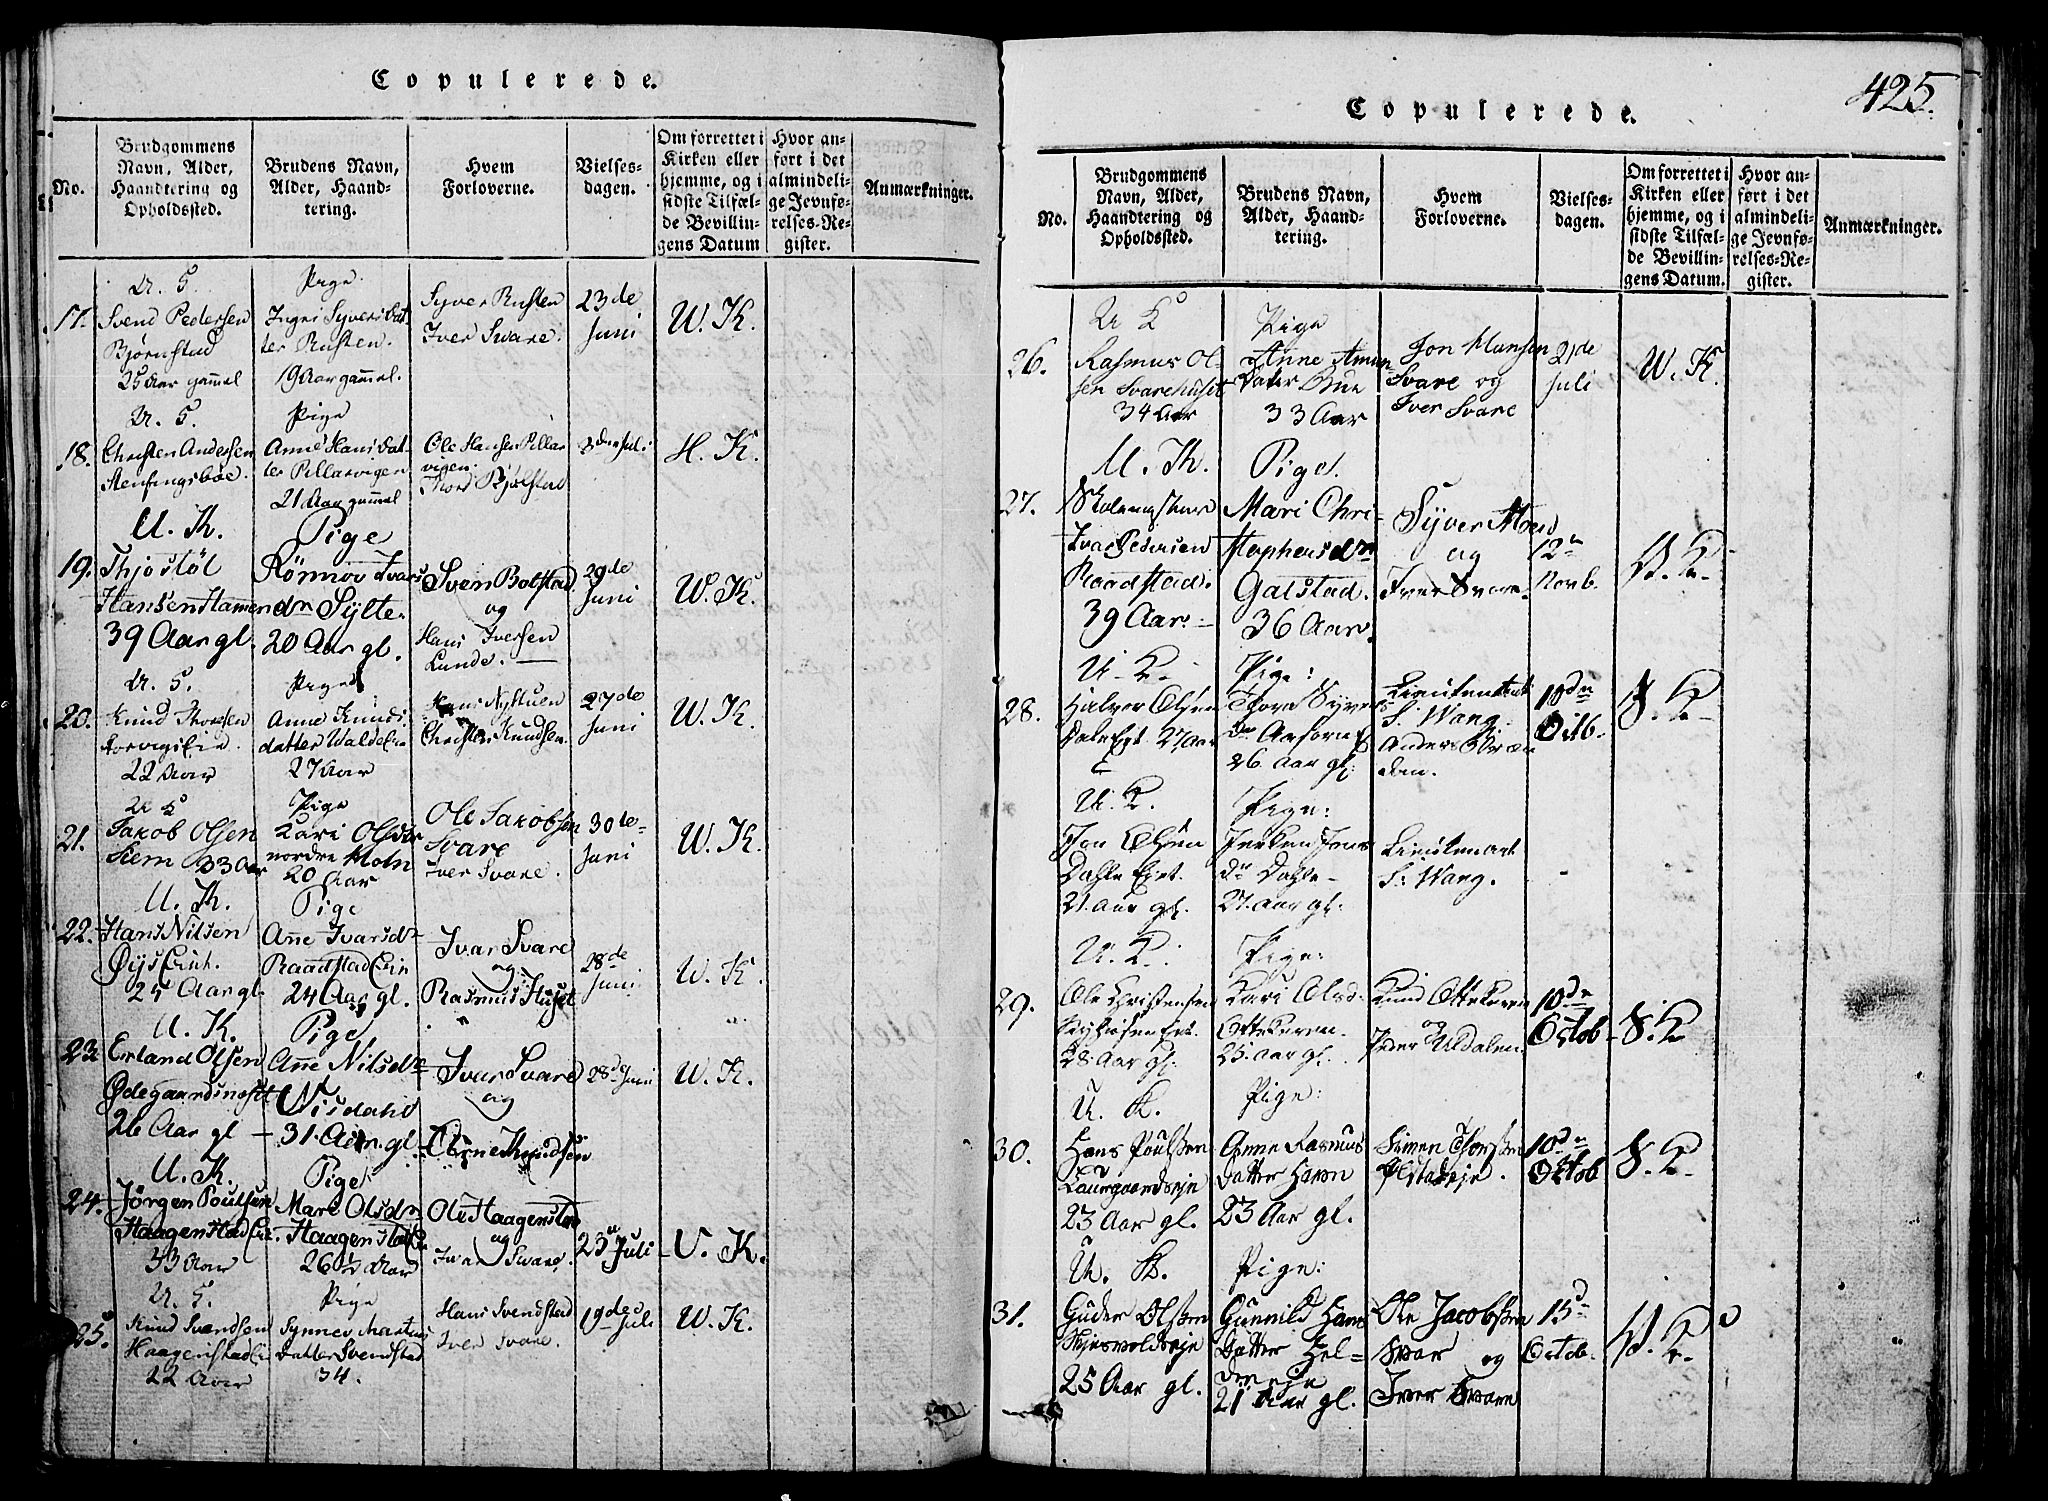 Copulerede.
No.
Brudgommens Navn, Alder, Haandtering og Opholdssted.
Brudens Navn, Alder, Haandtering.
Hvem Forloverne.
Vielses-dagen.
Om forrettet i Kirken eller hjemme, og i sidste Tilfælde Bevillingens Datum
Hvor anført i det almindelige Jevnførelses-Register.
Anmærkninger.
17.
U. S.
Svend Pedersen
Bjørnstad
25 Aar gammel
Pige
Ingri Syversdat-
ter Rusten.
19 Aar gammel.
Syver Rusten
Iver Svare.
23de
Juni
W. K.
18.
U. S.
Christen Andersen
Pige
Anne Hansdat-
ter Pillarvigen
21 Aar gammel
Ole Hansen Pillar
vigen.
Bjølstad
3den Juli
H. K.
19.
U. K.
Thjostøl
Hansen Hammen
39 Aar gl.
Pige
Rönnov Ivars
dn Sylte.
20 Aar gl.
Sven Bolstad
og
Hans Iversen
Lunde.
29de
Juni
W. K.
20.
U. S.
Knud Thoresen
22 Aar
Pige
Anne Knuds
datter
27 Aar
Christen Knudsen.
27de
Juni
W. K.
21.
U S
Jakob Olsen
Siem 23 Aar
Pige
Kari Olsdtr
nordre Moln
20 Aar
Ole Jakobsen
Svare
Iver Svare.
30de
Juni
W. K.
22.
U. K.
Hans Nilsen
25 Aar gl.
Pige
Anne Ivarsdn
Raadstad Eie
24 Aar gl.
Ivar Svare
og
Rasmus Huset
28de
Juni
W. K.
23
U. K.
Erland Olsen
Ødegaardsnæst
26 Aar gl
Pige
Anne Nilsdn
Nisdahl
31 Aar gl
Ivar Svare
og
Arne Knudsen
28de Juni
W. K.
24.
U. K.
Jørgen Poulsen
Haagenstad Eie.
33 Aar
Pige
Mari Olsdn
Haagenstad Eie
26 1/2 Aar
Ole Haagenstad
og
Iver Svare.
23 Juli
V. K.
25.
U. S.
Knud Svendsen
Haagenstad Eie
22 Aar
Pige
Synnev Martins
datter Svendstad
34.
Hans Svendstad
Iver Svare.
19de Juli
W. K.
425.
Copulerede.
No.
Brudgommens Navn, Alder, Haandtering og Opholdssted.
Brudens Navn, Alder, Haandtering.
Hvem Forloverne.
Vielses-dagen.
Om forrettet i Kirken eller hjemme, og i sidste Tilfælde Bevillingens Datum.
Hvor anført i det almindelige Jevnførelses-Register.
Anmærkninger.
26.
U K
Rasmus Ol
sen Svarehuset
34 Aar
Pige
Anne Amun-
datter Bue
33 Aar
Jon Hansen
Svare og
Iver Svare
21de
Juli
W. K.
27.
U. K.
Ivar Pedersen
Raadstad.
39 Aar.
Pige.
Mari Chri-
stophersdn
Galstad.
36 Aar.
Syver Moen
og
Iver Svare.
12n
Novb.
V. K.
28.
U. K.
Halvor Olsen
27 Aar
Pige:
Thora Syvers
dn
26 Aar gl:
Lieutenant
S. Wang.
Anders
10dn
Octb.
S. K.
U. K.
Jon Olsen
Dahle Eiet.
21. Aar gl.
Pige:
Jens
dn Dahle
27. Aar gl:
Lieutenant
S: Wang.
29.
U. K.
Ole Christensen
28. Aar gl.
Pige:
Kari Olsd:
Ottekeren.
25. Aar gl.
Knud Ottekeren
Peder Uldalen.
10de
Octob
S. K
30.
U. K.
Hans Poulsen
Laurgaardseje
23 Aar gl.
Pige:
Anne Rasmus
datter Havn
23 Aar gl.
Simen Thorsen
10dn
Octob
S. K.
31.
U. K.
Guder Olsen
25 Aar gl.
Pige:
Gunild Hans
datter Hel-
dereje
21 Aar gl.
Ole Jacobsen
Svar og
Iver Svare
15d
Octob.
V. K.